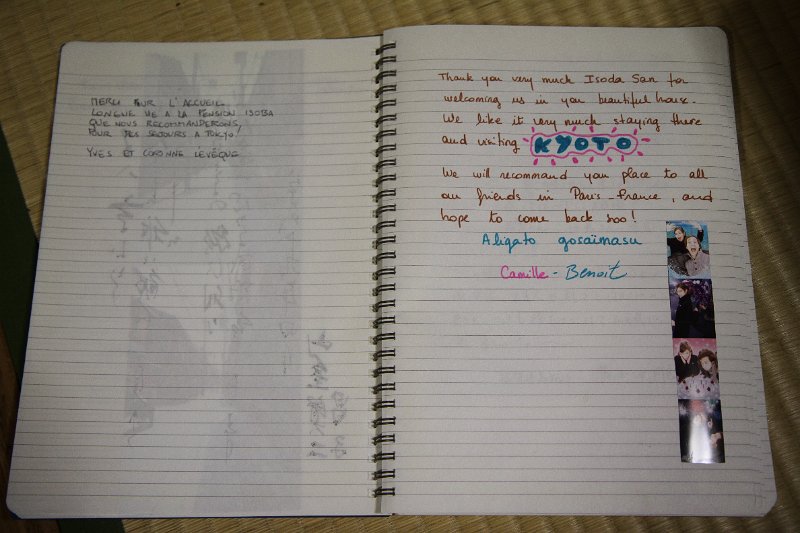 MERCI POUR L'ACCUEIL.
LONGUE VIE A LA PENSION ISODA
QUE NOUS RECOMMANDERONS
POUR DES SEJOURS A TOKYO!
YVES ET CORINNE LEVÊQUE
Thank you very much Isoda San for
welcoming us in you beautiful house.
We like it very much staying there
and visiting KYOTO
We will recommand you place to all
our friends in Paris - France, and
hope to come back soo!
Aligato gosaïmasu
Camille - Benoit